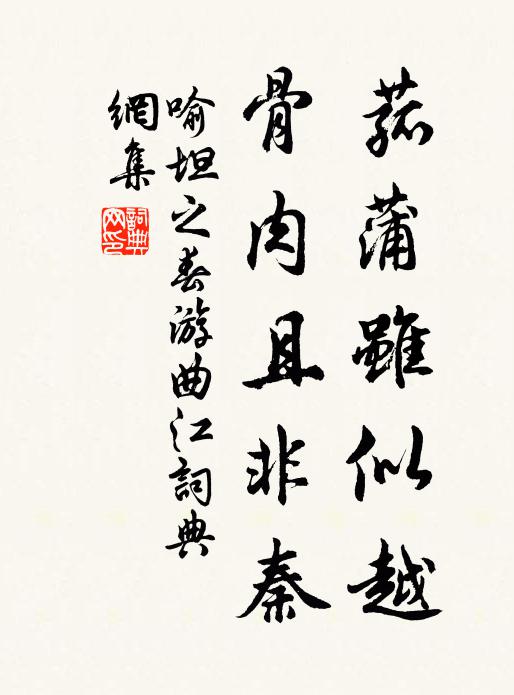 菰蒲雖似越
骨肉且非秦
喻坦之春游曲江詞典
網集
詞典
网印